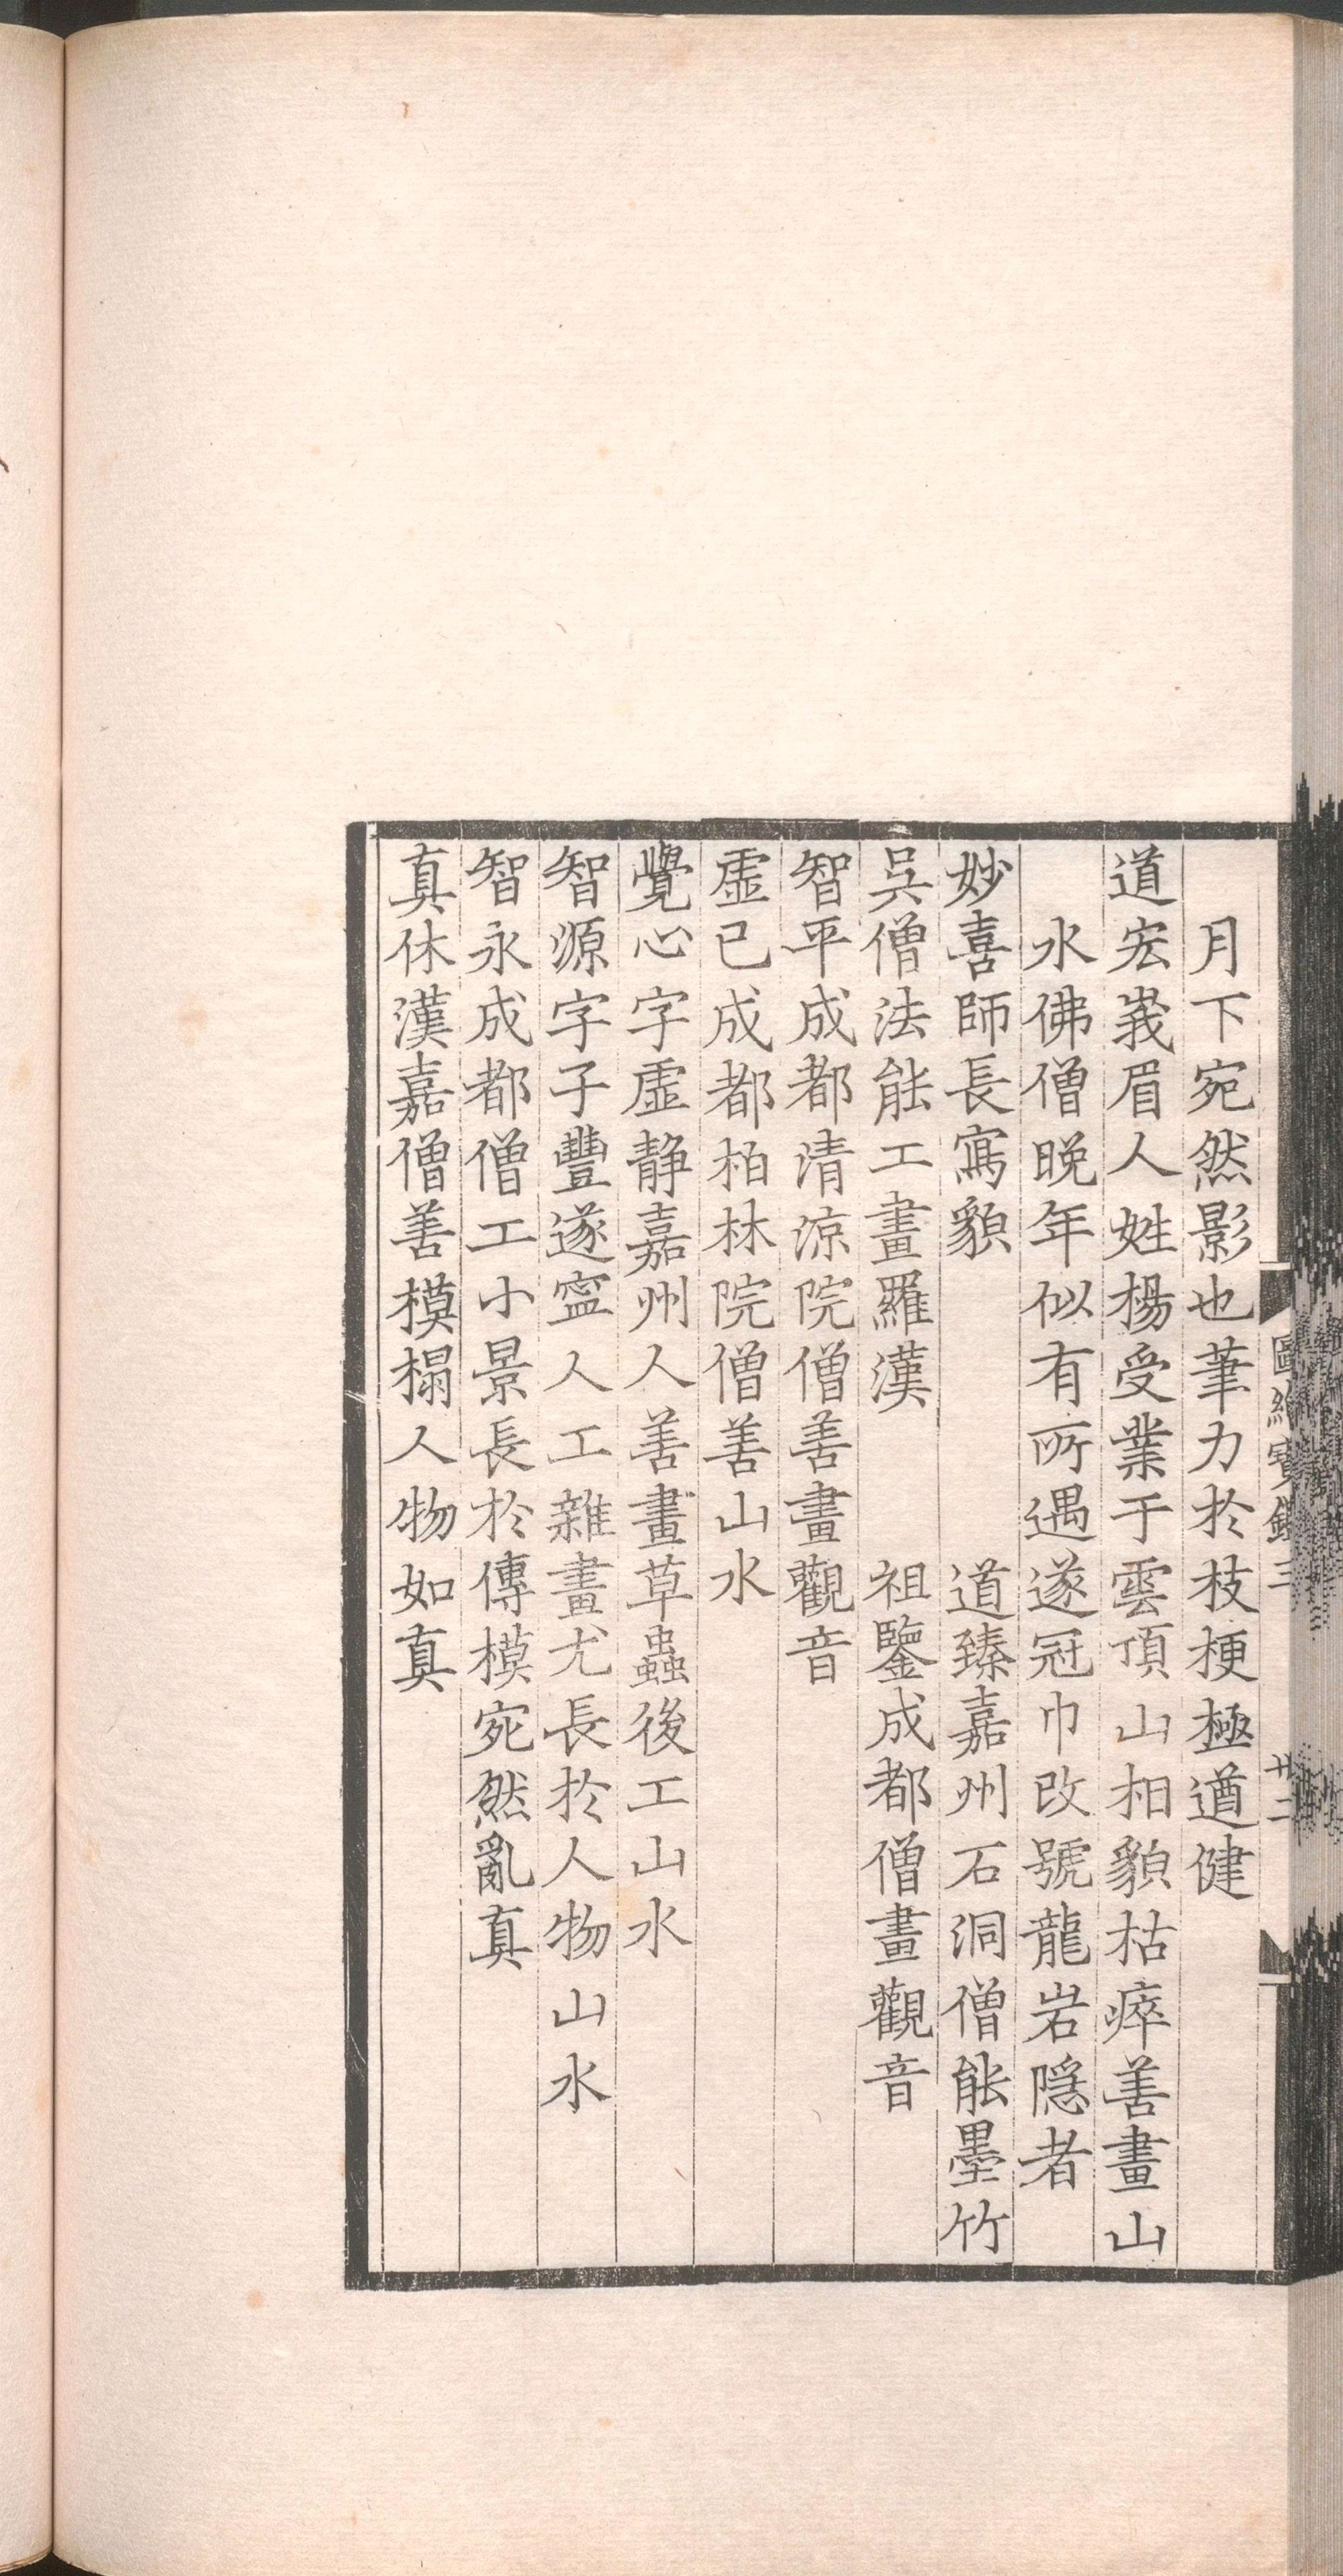 月下宛然影也筆力於枝梗極遒健
道宏峩眉人姓楊受業于雲頂山相貌枯瘁善畫山
水佛僧晚年似有所遇遂冠巾改號龍岩隱者
妙喜師長寫貌　道臻嘉州石洞僧能墨竹
吳僧法能工畫羅漢　祖鑒成都僧畫觀音
智平成都清涼院僧善畫觀音
虛己成都柏林院僧善山水
覺心字虛静嘉州人善畫草蟲後工山水
智源字子豐遂寍人工雜畫尤長於人物山水
智永成都僧工小景長於傳模宛然亂真
真休漢嘉僧善模搨人物如真
圖繪寶鑑三
廿二